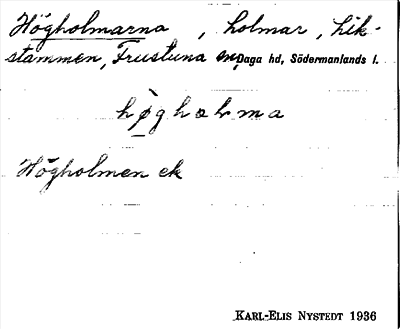 Högholmarna , holmar, Lik-
stammen, Frustuna sn, Daga hd, Södermanlands l.
hø̀gholma
Högholmen ek
KARL-ELIS NYSTEDT 1936